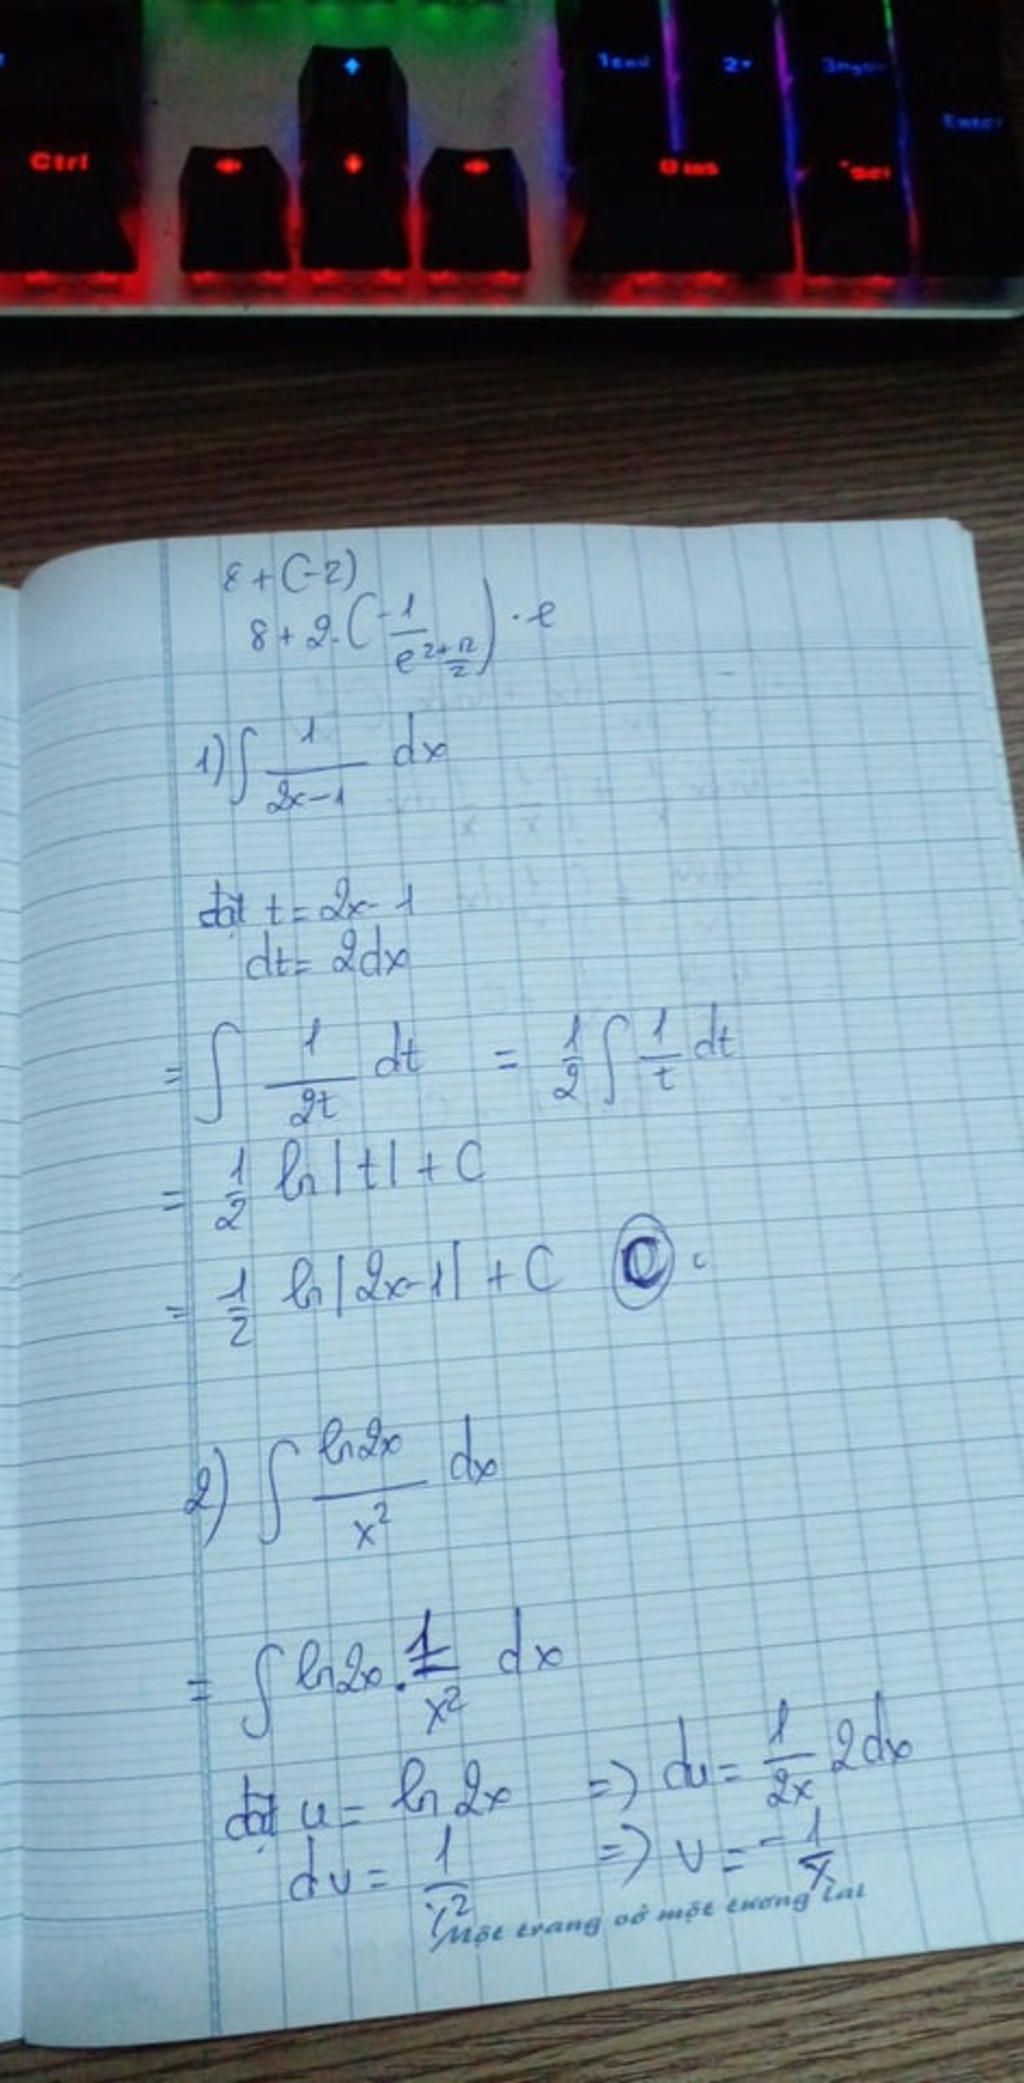 Ctrl
Enter
8 + (-2)
8 + 2.(-1/e^(2+π/2)) . e
1) ∫ 1/(2x-1) dx
đặt t = 2x-1
dt = 2dx
= ∫ 1/2t dt = 1/2 ∫ 1/t dt
= 1/2 ln|t| + C
= 1/2 ln|2x-1| + C C
2) ∫ ln2x/x² dx
= ∫ ln2x . 1/x² dx
đặt u = ln2x => du = 1/2x 2dx
dv = 1/x² => v = -1/x
Một trang vở một tương lai